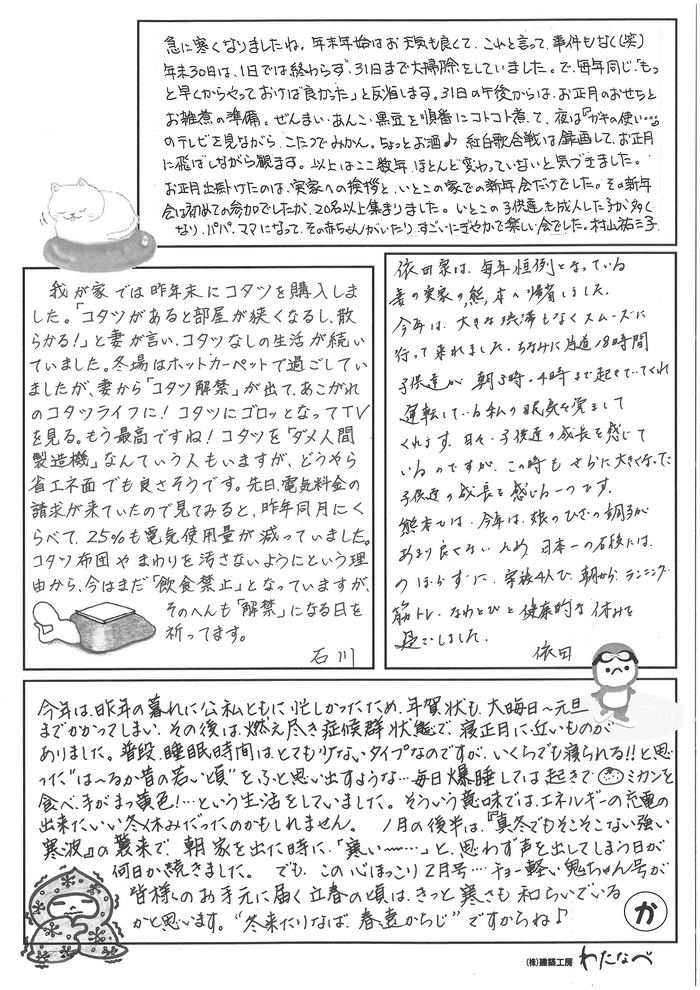 急に寒くなりましたね。年末年始はお天気も良くて、これと言って、事件もなく(笑)
年末30日は、1日では終わらず、31日まで大掃除をしていました。で、毎年同じ「もっ
と早くからやっておけば良かった」と反省します。31日の午後からは、お正月のおせちと
お雑煮の準備。ぜんまい・あんこ・黒豆を順番にコトコト煮て、夜は「ガキの使い……」
のテレビを見ながら、こたつでみかん。ちょっとお酒♪ 紅白歌合戦は録画して、お正月
に飛ばしながら観ます。以上はここ数年、ほとんど変わっていないと気づきました。
お正月出掛けたのは、実家への挨拶と、いとこの家での新年会だけでした。その新年
会は初めての参加でしたが、20名以上集まりました。いとこの子供達も成人した子が多く
なり、パパ、ママになって、その赤ちゃんがいたり、すごいにぎやかで楽しい会でした。村山祐三子
我が家では昨年末にコタツを購入しま
した。「コタツがあると部屋が狭くなるし、散
らかる!」と妻が言い、コタツなしの生活が続い
ていました。冬場はホットカーペットで過ごしてい
ましたが、妻から「コタツ解禁」が出て、あこがれ
のコタツライフに!コタツにゴロッとなってTV
を見る。もう最高ですね!コタツを「ダメ人間
製造機」なんていう人もいますが、どうやら
省エネ面でも良さそうです。先日、電気料金の
請求が来ていたので見てみると、昨年同月にく
らべて、25%も電気使用量が減っていました。
コタツ布団やまわりを汚さないようにという理
由から、今はまだ「飲食禁止」となっていますが、
そのへんも「解禁」になる日を
祈ってます。
石川
依田家は、毎年恒例となっている
妻の実家の、熊本へ帰省しました。
今年は、大きな渋滞もなくスムーズに
行って来れました。ちなみに片道18時間
子供達が 朝3時、4時まで起きていてくれ
運転している私の眠気を覚まして
くれます。日々、子供達の成長を感じて
いるのですが、この時も さらに大きくなった
子供達の成長を感じる一つです。
熊本では、今年は、娘のひざの調子が
あまり良くないため 日本一の石段には、
のぼらずに、家族4人で、朝から ランニング
筋トレ、なわとびと健康的な休みを
過ごしました。
依田
今年は、昨年の暮れに公私ともに忙しかったため、年賀状も大晦日~元旦
までかかってしまい、その後は、燃え尽き症候群状態で、寝正月に近いものが
ありました。普段、睡眠時間はとても少ないタイプなのですが、いくらでも寝られる!!と思
った"は~るか昔の若い頃"をふと思い出すような…毎日爆睡しては起きて ミカンを
食べ、手がまっ黄色!…という生活をしていました。そういう意味では、エネルギーの充電の
出来たいい冬休みだったのかもしれません。 1月の後半は、『真冬でもそこそこない強い
寒波』の襲来で、朝家を出た時に、「寒い~…」と、思わず声を出してしまう日が
何日か続きました。 でも、この心ほっこり2月号…チョー軽い鬼ちゃん号が
皆様のお手元に届く立春の頃は、きっと寒さも和らいでいる
かと思います。"冬来たりなば、春遠からじ"ですからね♪
か
(株)建築工房 わたなべ